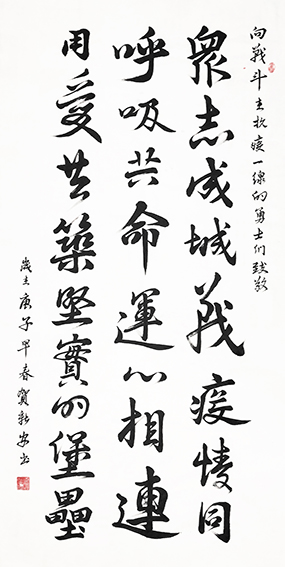 向戰斗在抗疫一線的勇士们致敬
衆志成城戰疫情同
呼吸共命運心相連
用愛共築堅實的堡壘
歲在庚子早春賀新安书